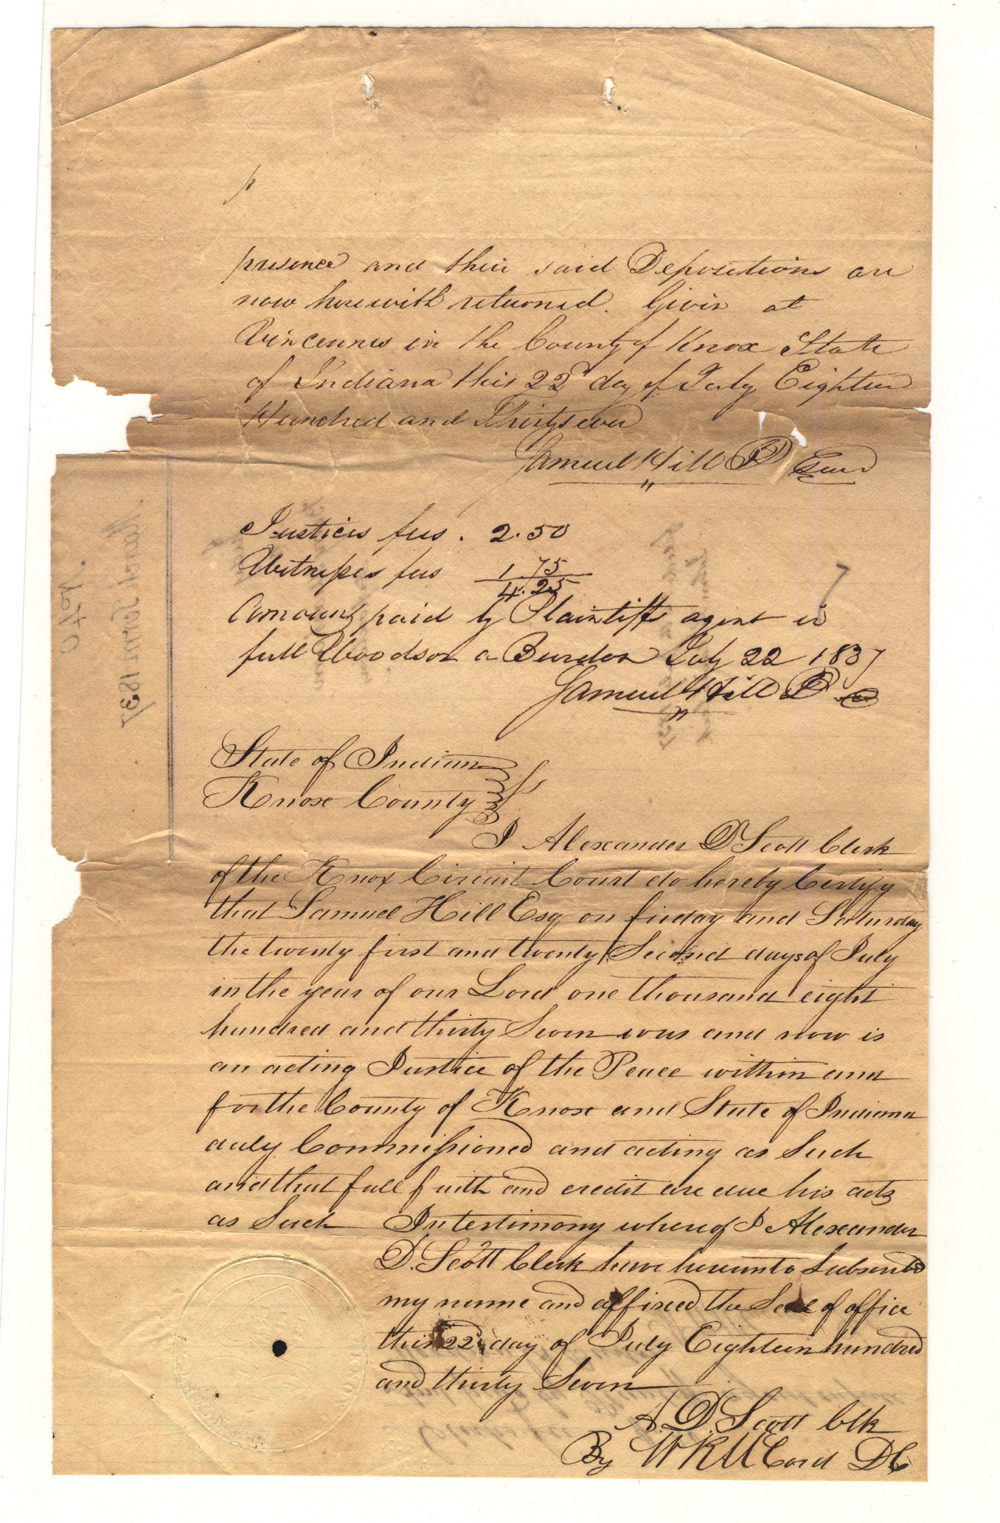 presence and their said Depositions are
now herewith returned. Given at
Vincennes in the County of Knox State
of Indiana this 22d day of July Eighteen
Hundred and Thirtyseven
Samuel Hill JP
Justices fees . 2.50
Witnesses fees 1 75
4.25
Amount paid by Plaintiffs agent in
full Woodson a Burdon July 22 1837
Samuel Hill JP
State of Indiana
Knox County Ss
I Alexander D Scott Clerk
of the Knox Circuit Court do hereby Certify
that Samuel Hill Esq on friday and Saturday
the twenty first and twenty Second days of July
in the year of our Lord one thousand eight
hundred and thirty Seven was and now is
an acting Justice of the Peace within and
for the County of Knox and State of Indiana
duly Commissioned and acting as Such
and that full faith and credit are due his acts
as Such In testimony whereof I Alexander
D. Scott Clerk have hereunto Subscribd
my name and affixed the Seal of office
this 22d day of July Eighteen hundred
and thirty Seven
A D Scott Clk
By W R McCord DC
March Term 1837
No 70